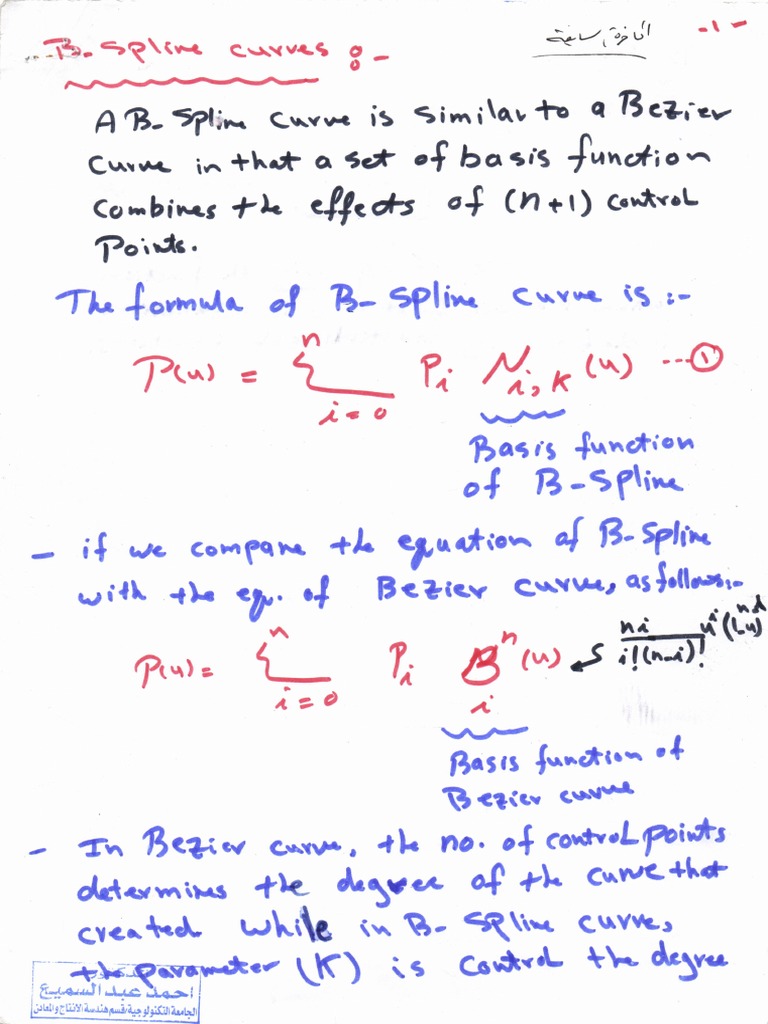 B-Spline curves :-
المحاضرة سابعة
-١-
A B-Spline curve is similar to a Bezier
curve in that a set of basis function
combines the effects of (n+1) control
Points.
The formula of B-Spline curve is :-
P(u) = Σ n i=0 Pi Ni,K (u) ---①
Basis function
of B-Spline
- if we compare the equation of B-Spline
with the eq. of Bezier curve, as follows:-
P(u) = Σ n i=0 Pi B n i (u) ↙ n! / i!(n-i)! u^i (1-u)^n-i
Basis function of
Bezier curve
- In Bezier curve, the no. of control points
determines the degree of the curve that
created while in B-Spline curve,
the parameter (K) is control the degree
احمد عبد السميع
الجامعة التكنولوجية/قسم هندسة الانتاج والمعادن